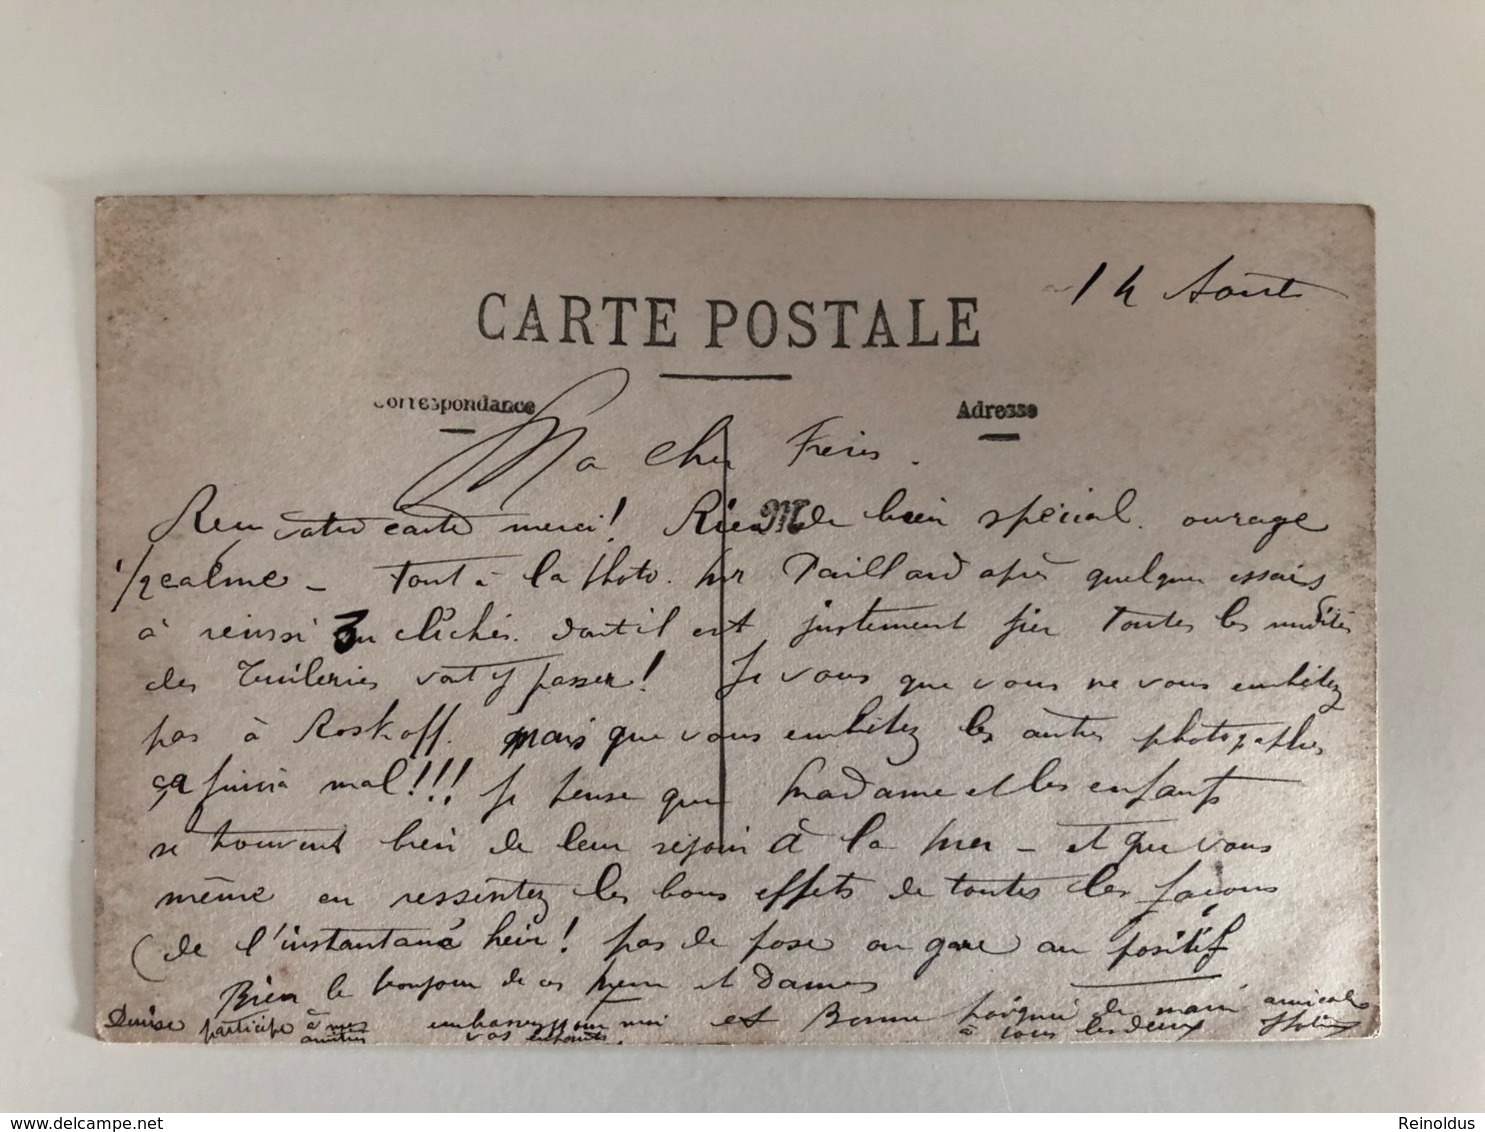 14 Aout
CARTE POSTALE
Correspondance
Adresse
Ma Cher Frère.
Reçu votre carte merci! Rien de bien spécial. ourage
calme - tout à la photo. Mr Paillard après quelques essais
à réussi 3 clichés. dont il est justement fier toutes les nudités
des Tuileries vont y passer! Je vous que vous ne vous embêtez
pas à Roskoff. mais que vous embêtez les autres photographes
ça finira mal!!! Je pense que Madame et les enfants
se trouvent bien de leur séjour à la mer - et que vous
même en ressentez les bons effets de toutes les façons
(de l'instantané hein! pas de pose ou gare au positif
Bien le bonjour de ces Mrs et Dames
Denise participe à mes amitiés embrassez pour moi vos enfants. et Bonne poignée de main amicale à tous les deux
Reinoldus